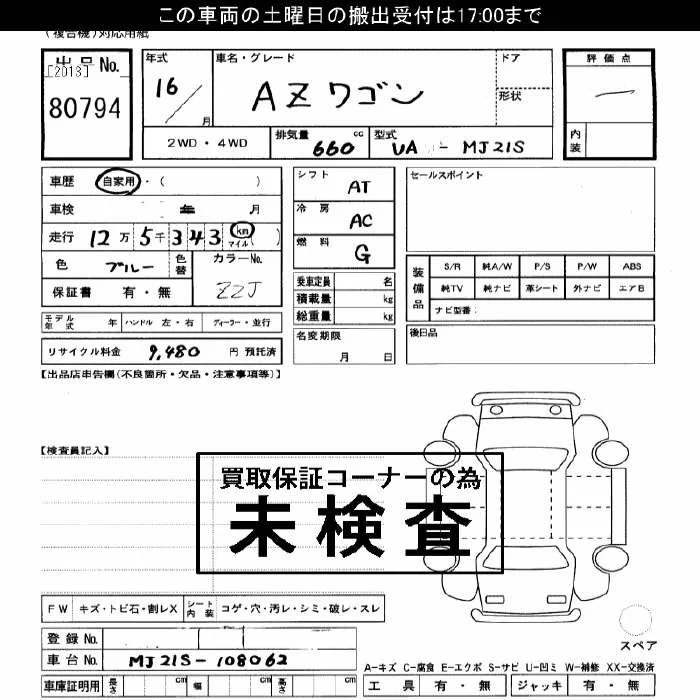 この車両の土曜日の搬出受付は17:00まで
(複合機)対応用紙
出品 No.
[2013]
80794
年式
16
月
車名・グレード
AZワゴン
ドア
形状
評価点
内装
2WD・4WD
排気量 660 cc
型式 UA - MJ21S
車歴 自家用・( )
車検 年 月
走行 12万5千343 km マイル ( )
色 ブルー 色替
カラーNo. ZZJ
保証書 有・無
シフト AT
冷房 AC
燃料 G
乗車定員 名
積載量 kg
総重量 kg
セールスポイント
装備品
S/R 純A/W P/S P/W ABS
純TV 純ナビ 革シート 外ナビ エアB
ナビ型番:
モデル年式 年 ハンドル 左・右 ディーラー・並行
名変期限
月 日
後日品
リサイクル料金 9,480 円 預託済
【出品店申告欄(不良箇所・欠品・注意事項等)】
【検査員記入】
買取保証コーナーの為
未検査
FW キズ・トビ石・割レX シート内装 コゲ・穴・汚レ・シミ・破レ・スレ
登録 No.
車台 No. MJ21S-108062
車庫証明用 長さ cm 幅 cm 高さ cm
スペア
A-キズ C-腐食 E-エクボ S-サビ U-凹ミ W-補修 XX-交換済
工具 有・無 ジャッキ 有・無